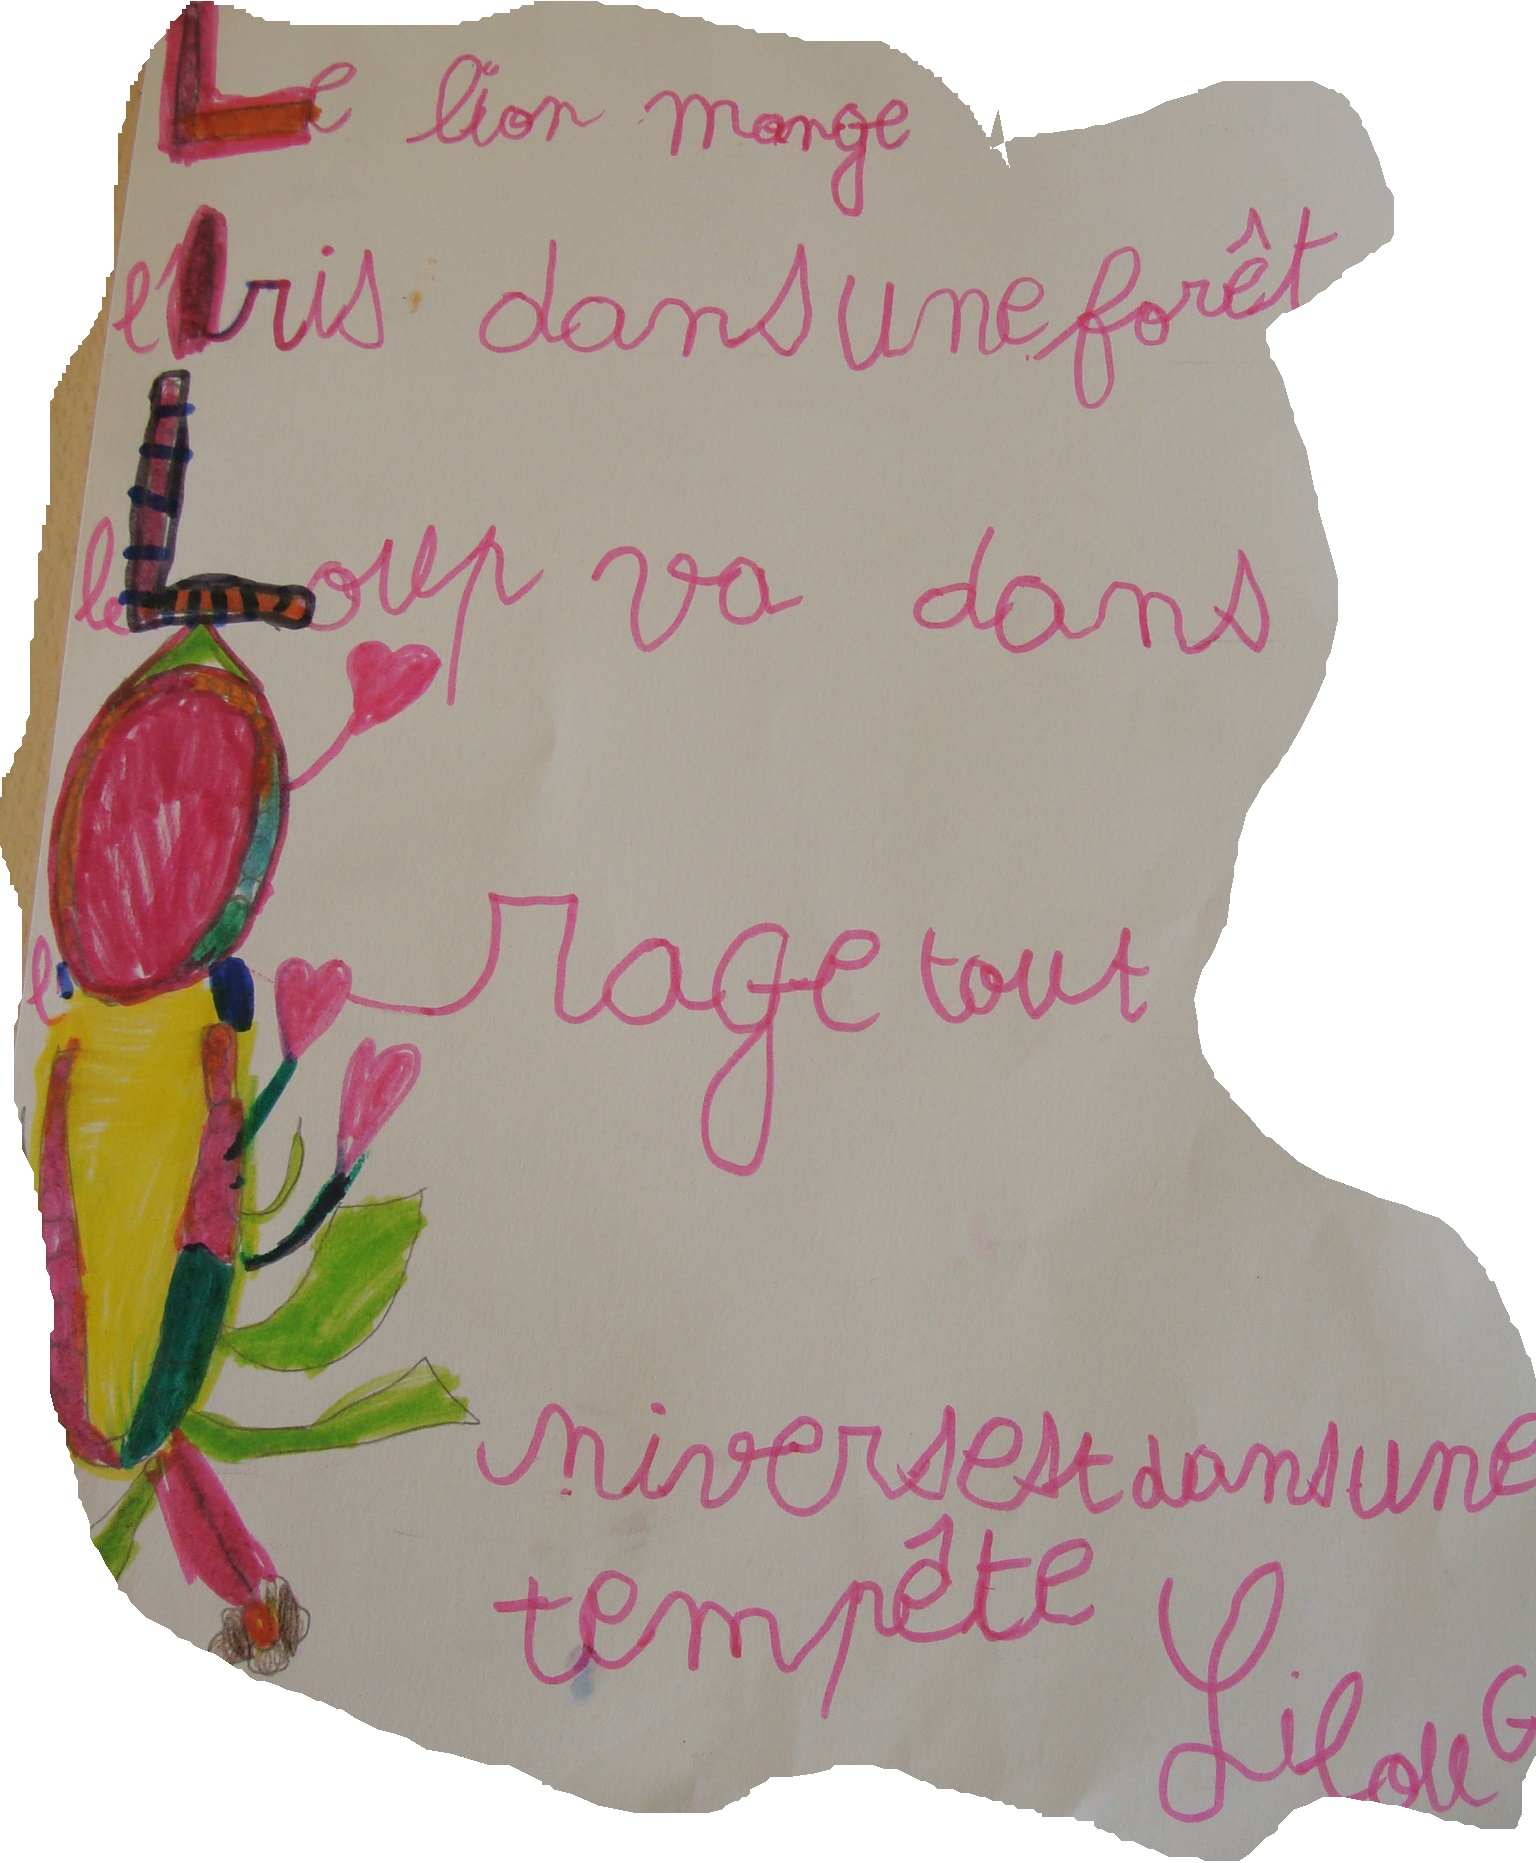 Le lion mange
l'Iris dans une forêt
le Loup va dans
l'Orage tout
Univers est dans une
tempête
Lilou G